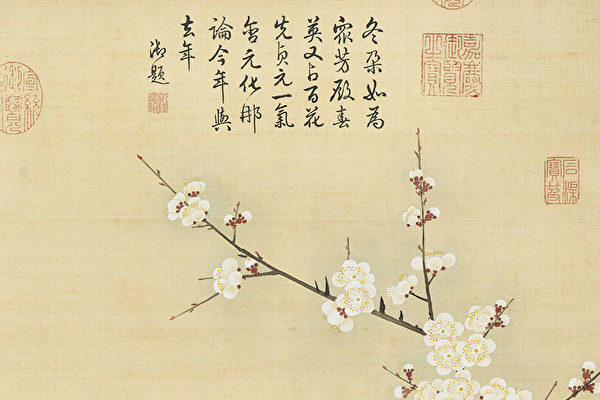 冬朶如為
衆芳殿春
英又占百花
先貞元一氣
含元化那
論今年與
去年
御題
嘉慶
御覽
之寶
石渠
寶笈
宣統
御覽